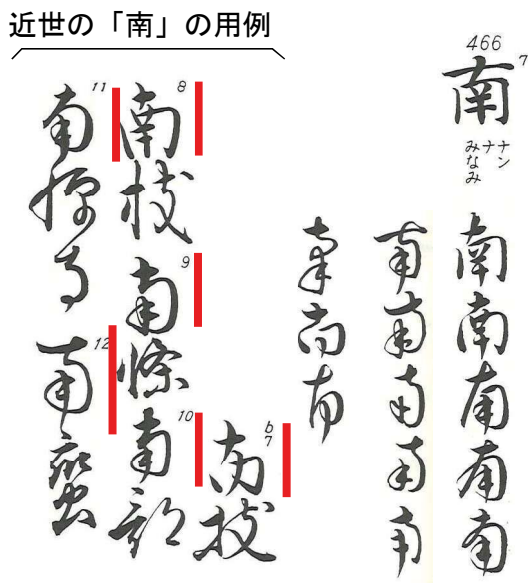 近世の「南」の用例
466
南 7
ナン
ナ
みなみ
南南南南南
南南南南南
南南南
b7 南枝
8 南枝
9 南條
10 南部
11 南禅寺
12 南蛮